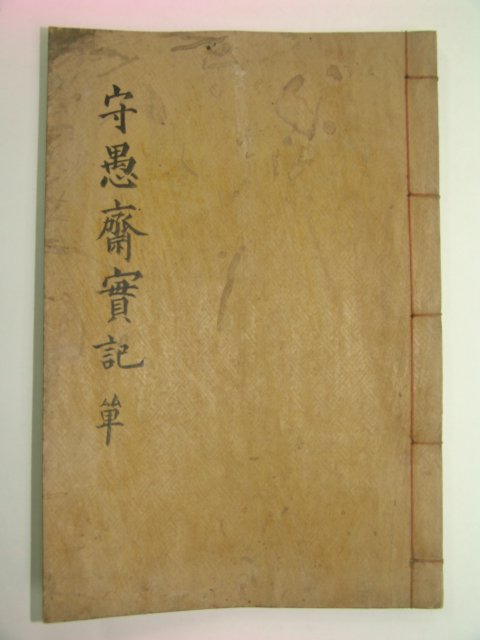 守愚齋實記 單